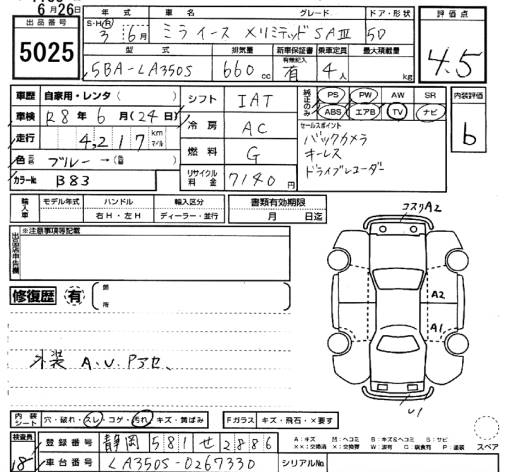 6月26日
出品番号
5025
年式 車名 グレード ドア・形状 評価点
S・H・R 3年 6月 ミライース XリミテッドSAⅢ 5D
4.5
型式 排気量 新車保証書 乗車定員 最大積載量
有無記入
5BA-LA350S 660cc 有 4人 kg
車歴 自家用・レンタ( )
車検 R8年6月(24日)
走行 4,217 km マイル
色 ブルー→(色 )
カラーNo B83
シフト IAT
冷房 AC
燃料 G
リサイクル料金 7140円
純正のみ PS PW AW SR
ABS エアB TV ナビ
セールスポイント
バックカメラ
キーレス
ドライブレコーダー
内装評価
b
輸入車 モデル年式 ハンドル 輸入区分
年 右H・左H ディーラー・並行
書類有効期限
月 日迄
出品店申告欄
※注意事項等記載
修復歴 有 箇所
外装 A.U.Pアセ、
コスリA2
A2
A1
U1
内装シート 穴・破れ・スレ・コゲ・汚れ・キズ・黄ばみ
Fガラス キズ・飛石・×要す
検査員
18
登録番号 静岡 581 せ 2886
車台番号 LA350S-0267330
シリアルNo
A:キズ M:ヘコミ B:キズ&ヘコミ S:サビ
××:交換済 ×:交換要 W:波有 C:腐食有 P:塗装
スペア